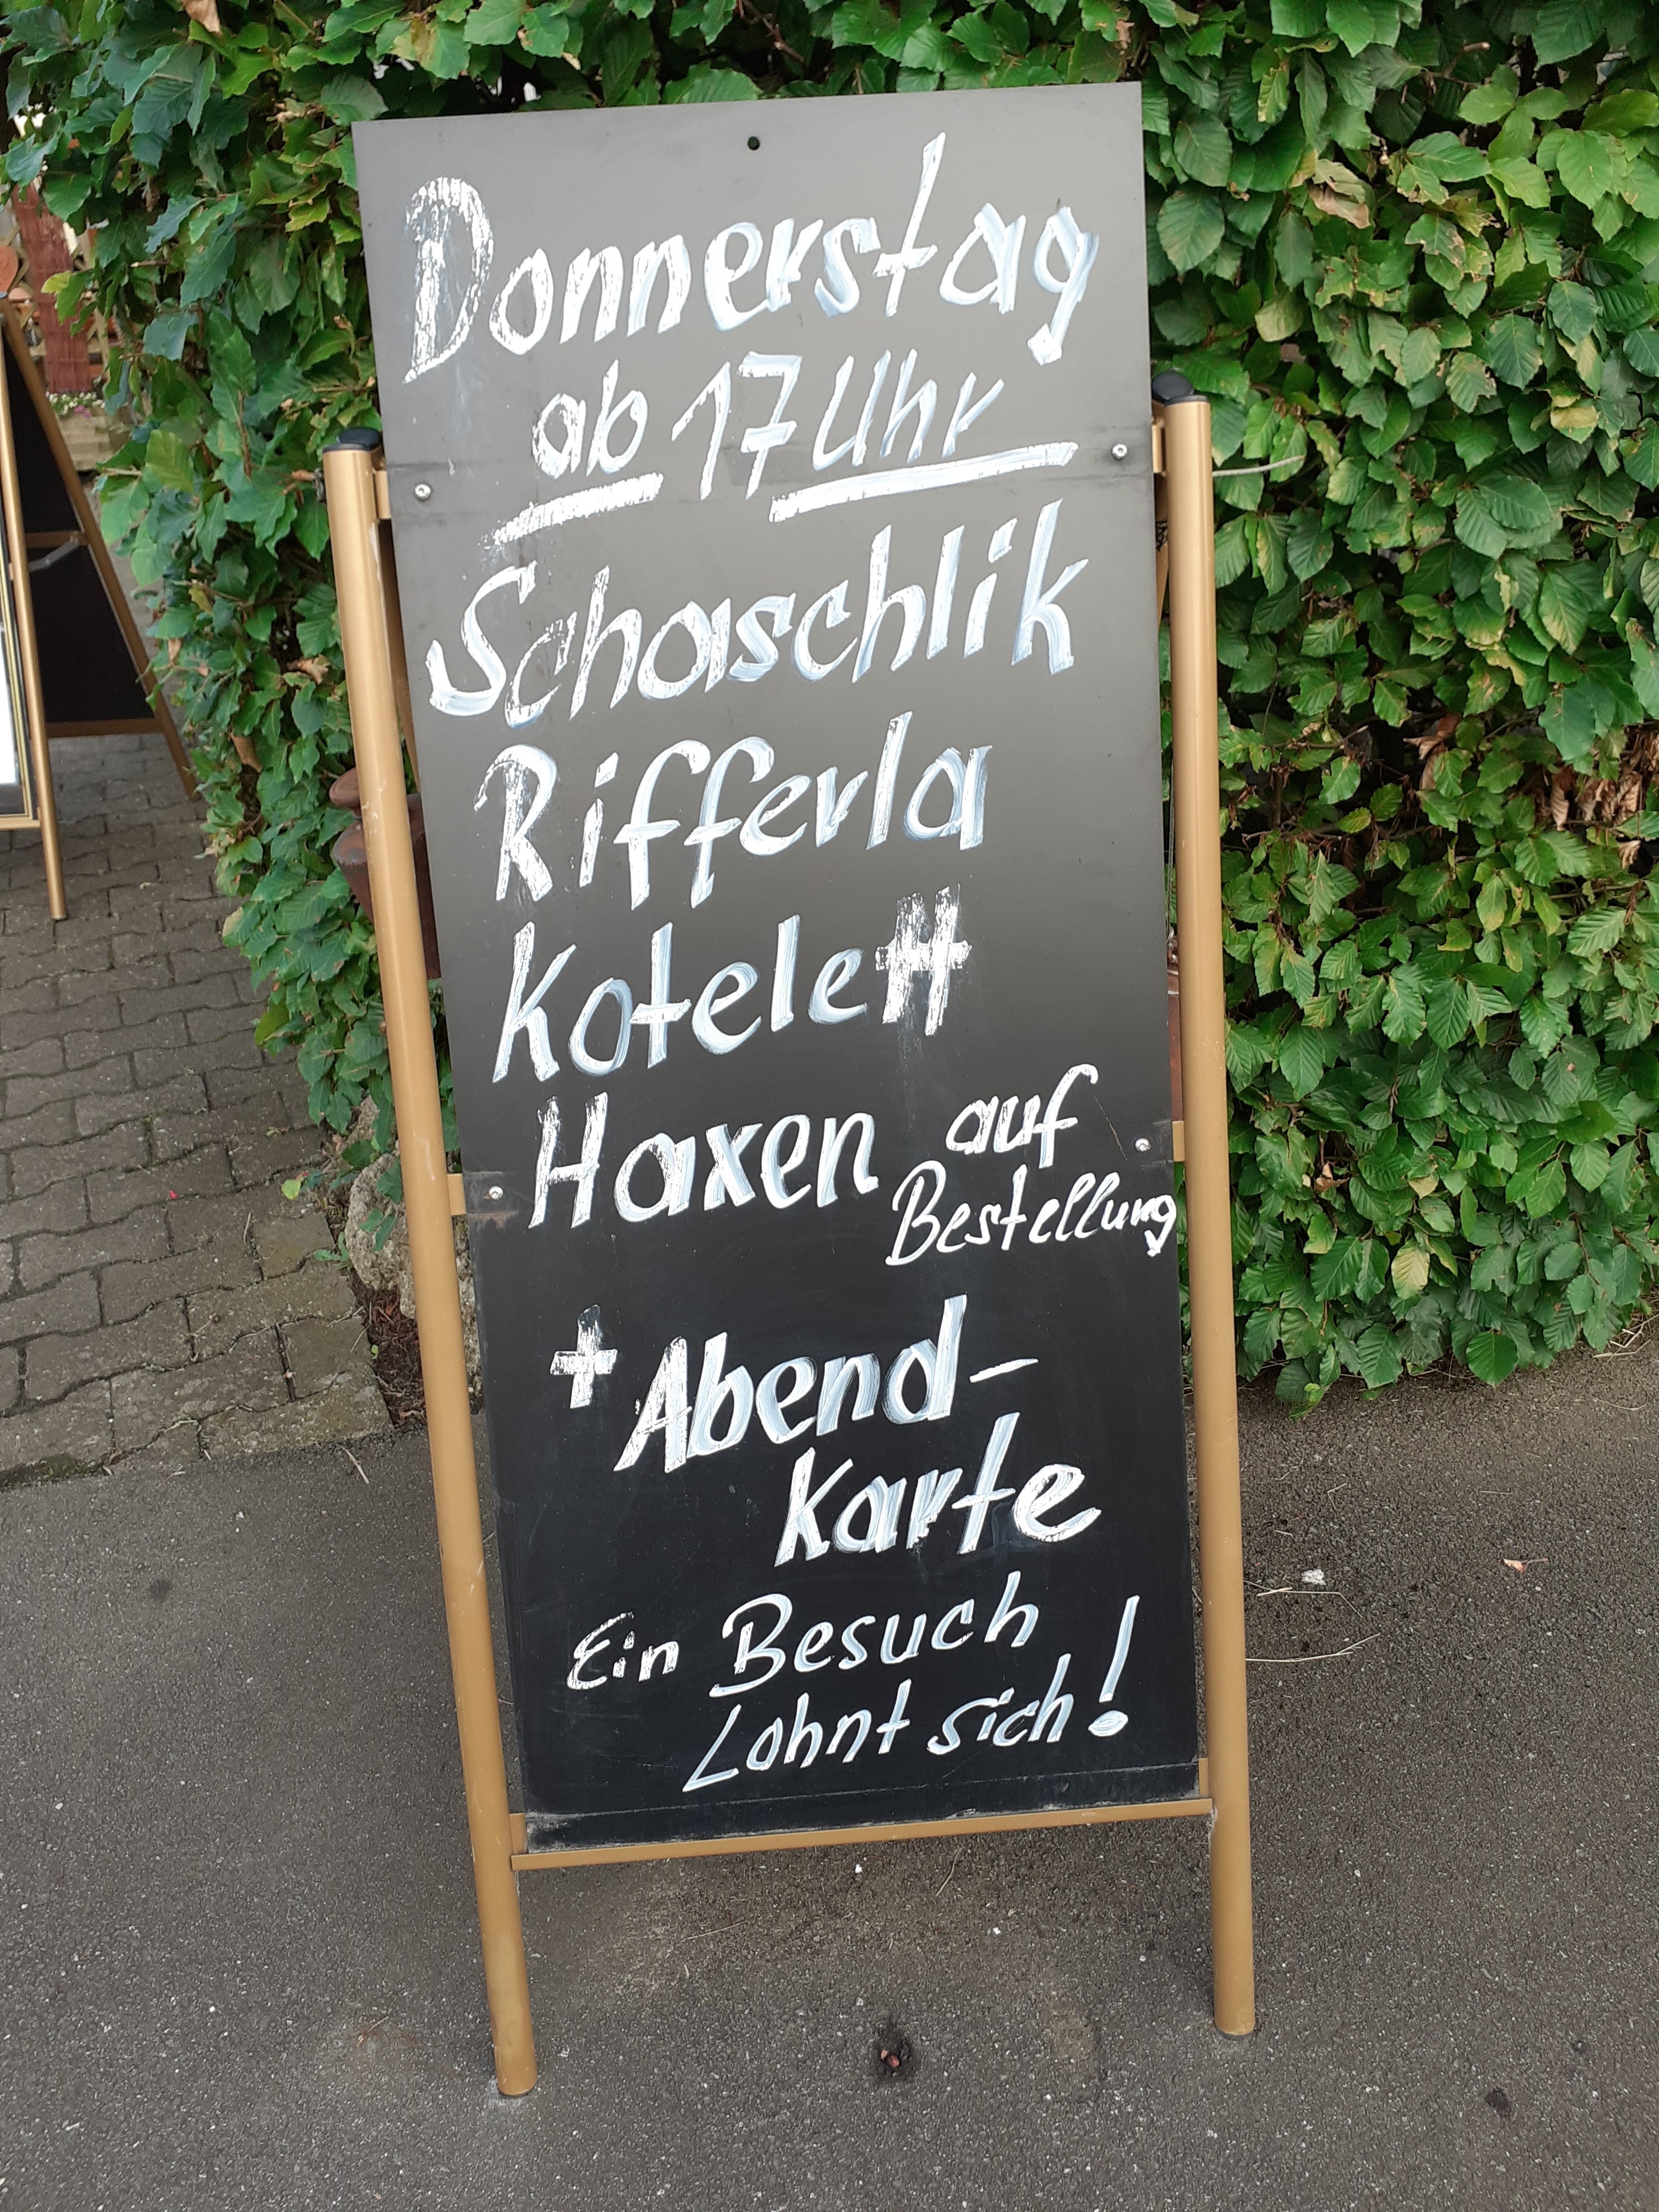 Donnerstag
ab 17 Uhr
Schaschlik
Rifferla
Kotelett
Haxen auf
Bestellung
+ Abend-
Karte
Ein Besuch
Lohnt sich!